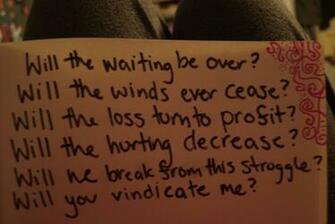 Will the waiting be over?
Will the winds ever cease?
Will the loss turn to profit?
Will the hurting decrease?
Will we break from this struggle?
Will you vindicate me?